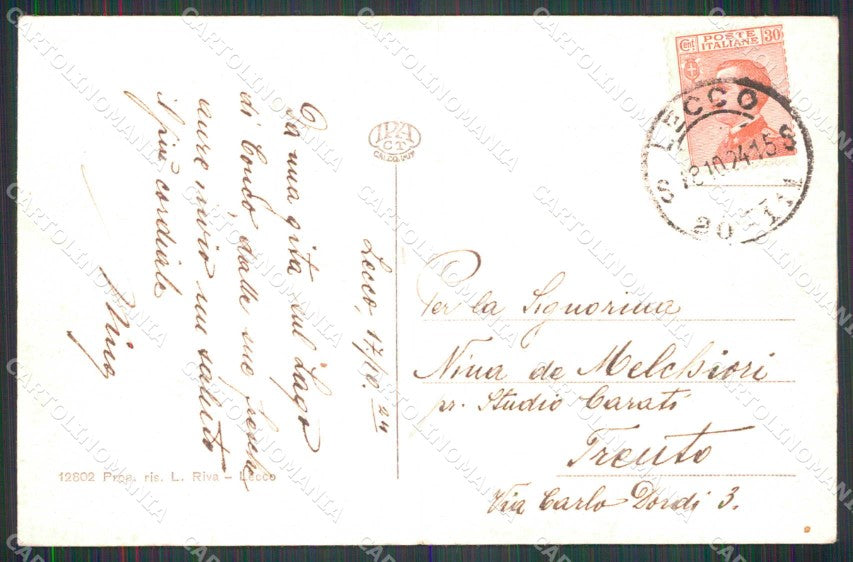 Lecco, 17/10.24
Da una gita sul Lago
di Como dalle sue fresche
aure invio un saluto
il più cordiale
Nino
IPA
CT
12802 Prop. ris. L. Riva - Lecco
Cent POSTE ITALIANE 30
LECCO
18.10.24.15
Per la Signorina
Nina de Melchiori
pr. Studio Carati
Trento
Via Carlo Dordi 3.
CARTOLINOMANIA